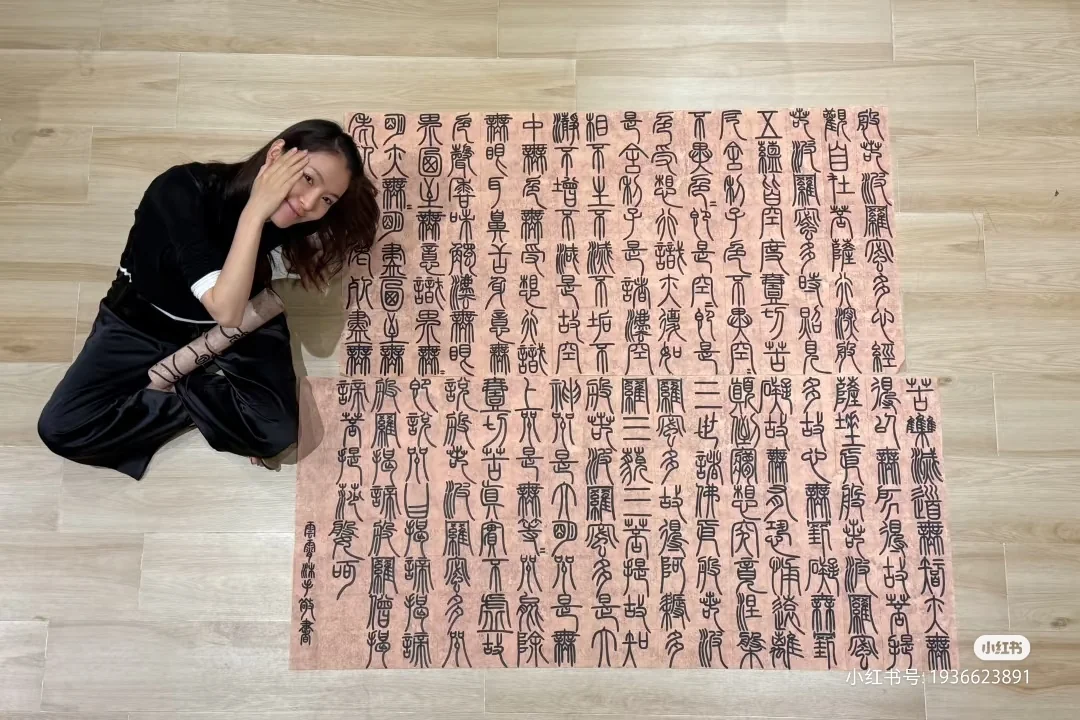 般若波羅蜜多心經
觀自在菩薩行深般
若波羅蜜多時照見
五蘊皆空度壹切苦
厄舍利子色不異空
不異色色即是空空即是
色受想行識亦復如
是舍利子是諸灋空
相不生不滅不垢不
瀞不增不減是故空
中無色無受想行識
無眼耳鼻舌身意無
色聲香味觸灋無眼
界乃至無意識界無
明亦無無明盡乃至無
老死盡無
苦集滅道無智亦無
得以無所得故菩提
薩埵依般若波羅蜜
多故心無罣礙無罣
礙故無有恐怖遠離
顛倒夢想究竟涅槃
三世諸佛依般若波
羅蜜多故得阿耨多
羅三藐三菩提故知
般若波羅蜜多是大
神咒是大明咒是無
上咒是無等等咒能除
壹切苦真實不虛故
說般若波羅蜜多咒
即說咒曰揭諦揭諦
般羅揭諦般羅僧揭
諦菩提莎婆訶
沐手敬書
小红书
小红书号:1936623891